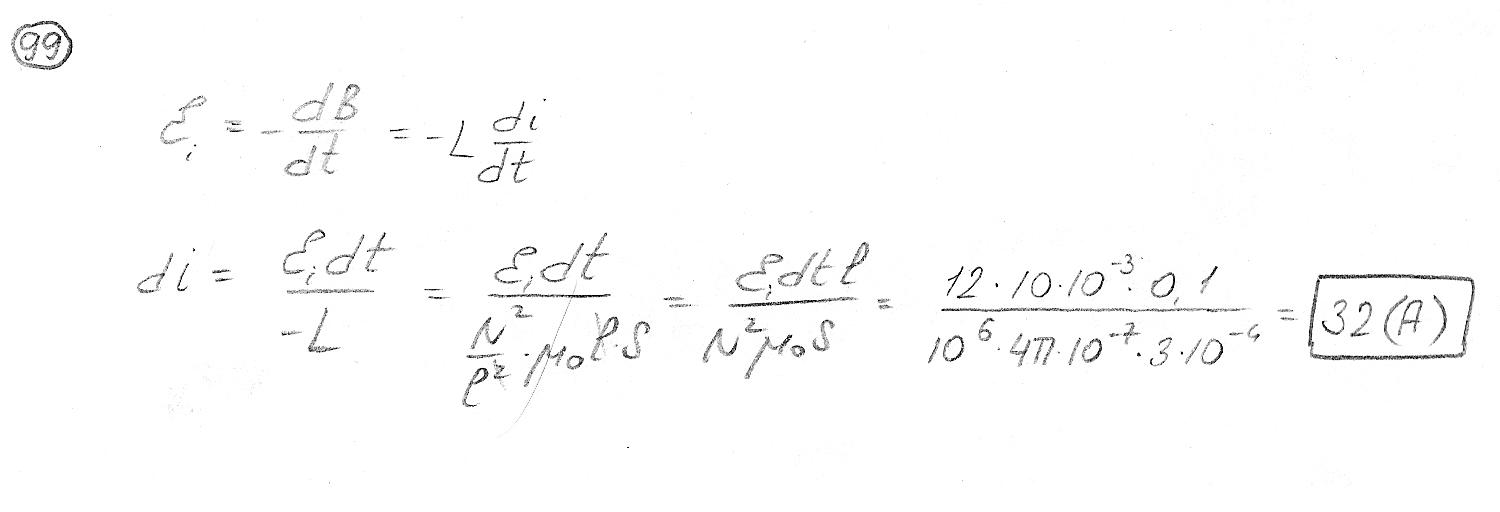 99
ℰᵢ = - dB/dt = -L di/dt
di = ℰᵢdt/-L = ℰᵢdt/(N²/ℓ² · μ₀ℓ·S) = ℰᵢdtℓ/(N²μ₀S) = 12·10·10⁻³·0,1/(10⁶·4π·10⁻⁷·3·10⁻⁴) = 32(A)